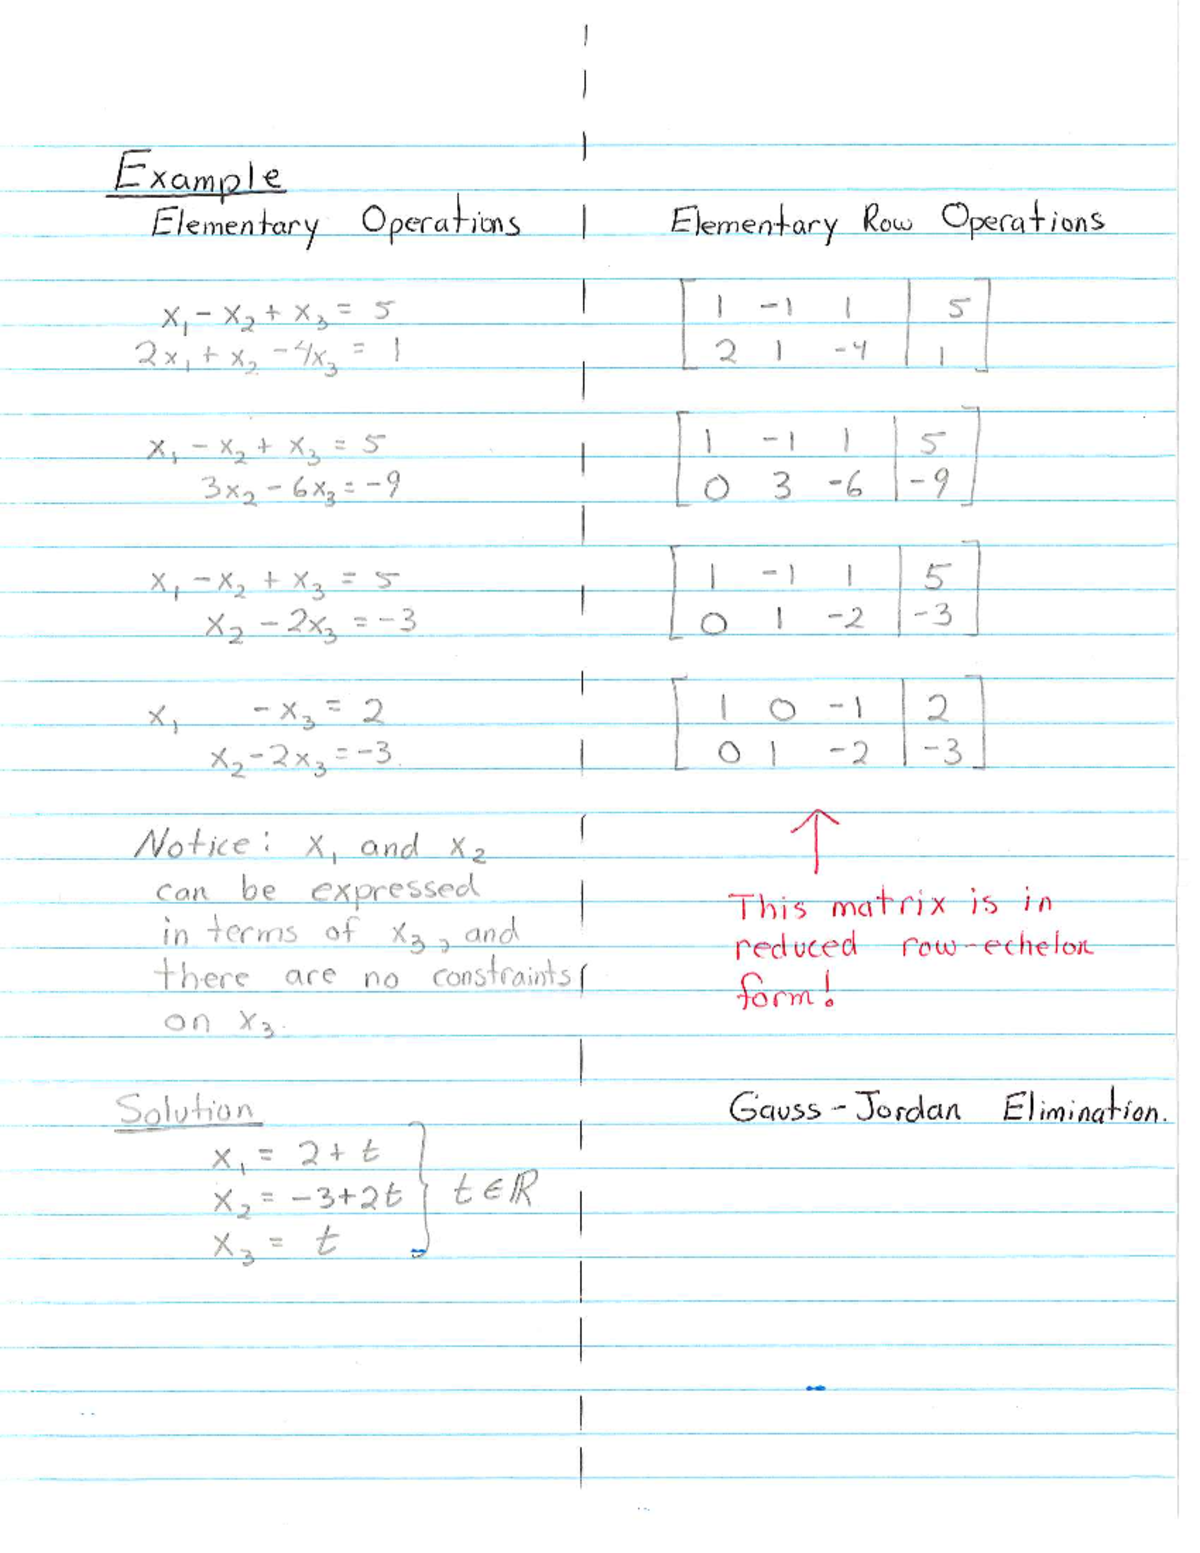 Example
Elementary Operations
x₁ - x₂ + x₃ = 5
2x₁ + x₂ - 4x₃ = 1
x₁ - x₂ + x₃ = 5
3x₂ - 6x₃ = -9
x₁ - x₂ + x₃ = 5
x₂ - 2x₃ = -3
x₁ - x₃ = 2
x₂ - 2x₃ = -3.
Notice: x₁ and x₂
can be expressed
in terms of x₃, and
there are no constraints
on x₃.
Solution
x₁ = 2 + t
x₂ = -3 + 2t } t ∈ ℝ
x₃ = t
Elementary Row Operations
[ 1 -1 1 | 5 ]
[ 2 1 -4 | 1 ]
[ 1 -1 1 | 5 ]
[ 0 3 -6 | -9 ]
[ 1 -1 1 | 5 ]
[ 0 1 -2 | -3 ]
[ 1 0 -1 | 2 ]
[ 0 1 -2 | -3 ]
↑
This matrix is in
reduced row-echelon
form!
Gauss-Jordan Elimination.